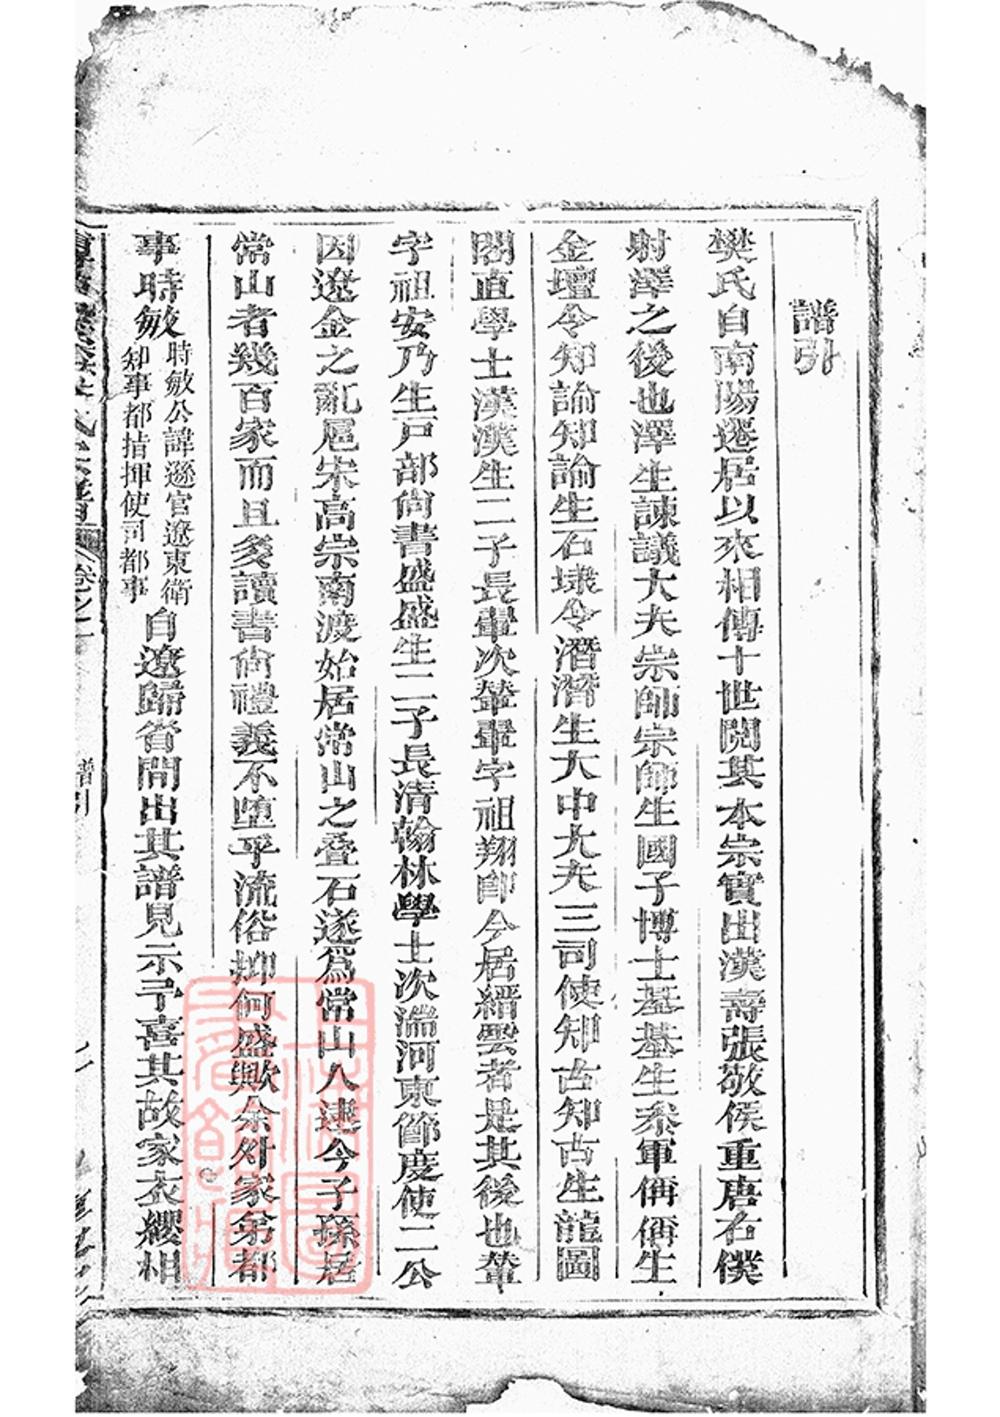 譜引
樊氏自南陽遷居以來相傳十世閱其本宗實出漢壽張敬侯重唐右僕
射澤之後也澤生諫議大夫宗師宗師生國子博士基基生叅軍偁偁生
金壇令知諭知諭生石埭令潛潛生大中大夫三司使知古知古生龍圖
閣直學士漢漢生二子長暈次輦暈字祖翔即今居縉雲者是其後也輦
字祖安乃生戸部尙書盛盛生二子長清翰林學士次湍河東節度使二公
因遼金之亂扈宋高宗南渡始居常山之叠石遂爲常山人逮今子孫居
常山者幾百家而且多讀書尙禮義不墮乎流俗抑何盛歟余外家弟都
事時敏
時敏公諱遜官遼東衛
知事都指揮使司都事
自遼歸省間出其譜見示予喜其故家衣纓相
譜引